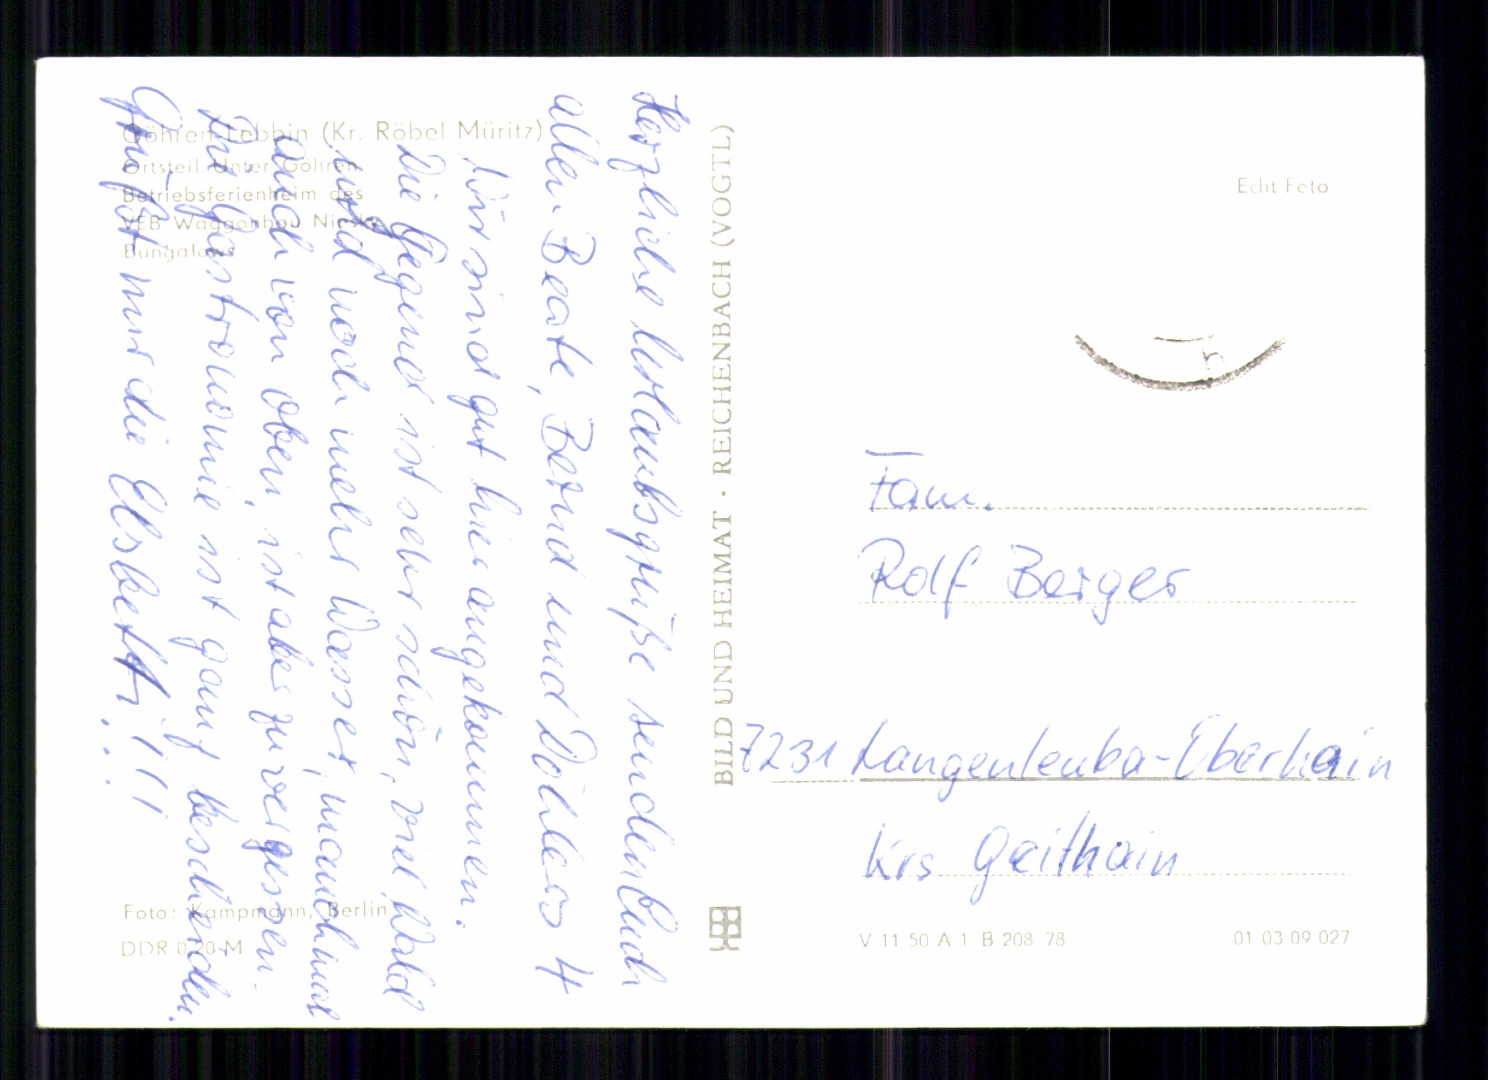 Göhren-Lebbin (Kr. Röbel Müritz)
Ortsteil Unter Göhren
Betriebsferienheim des
VEB Waggonbau Niesky
Bungalows
Herzliche Urlaubsgrüße senden Euch
allen Beate, Bernd und 4
Wir sind gut hier angekommen.
Die Gegend ist sehr schön, viel Wald
und noch mehr Wasser, manchmal
auch von oben, ist aber zu vergessen.
Die Gastronomie ist ganz bescheiden.
Grüßt mir die !!!
Foto: Kampmann, Berlin
DDR 0,20 M
BILD UND HEIMAT · REICHENBACH (VOGTL)
Echt Foto
Fam.
Rolf Berger
7231 Langenleuba-Oberhain
Krs Geithain
V 11 50 A 1 B 208 78
01 03 09 027